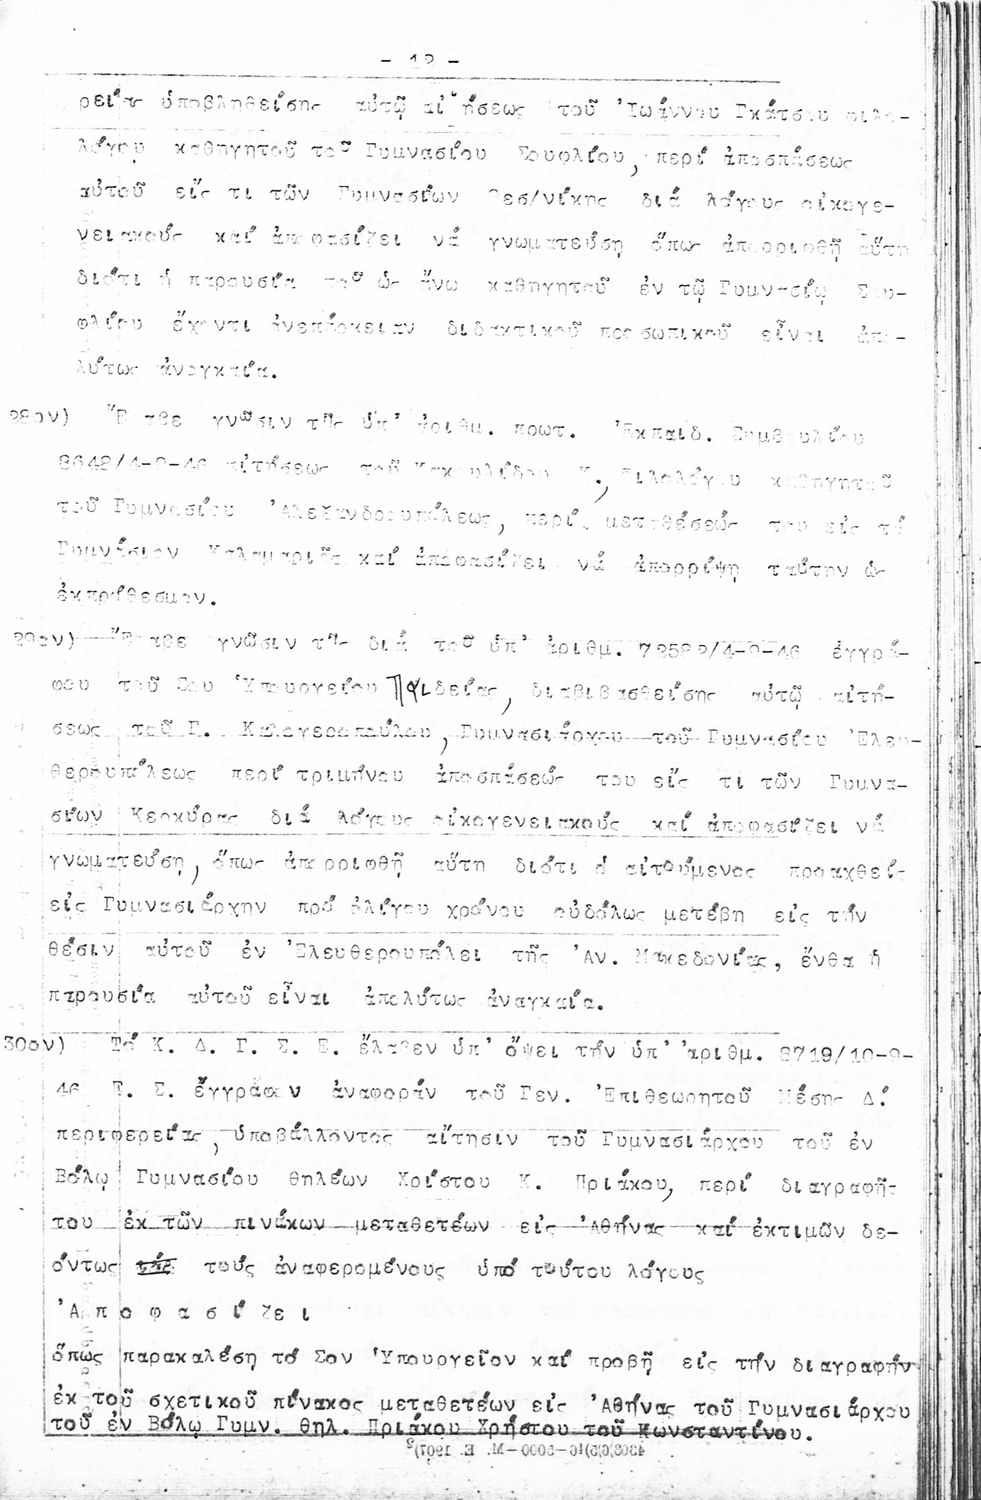 - 12 -
ρείας ὑποβληθείσης αὐτῷ αἰτήσεως τοῦ Ἰωάννου Γκάτσου φιλο-
λόγου καθηγητοῦ τοῦ Γυμνασίου Σουφλίου, περί ἀποσπάσεως
αὐτοῦ εἴς τι τῶν Γυμνασίων Θεσ/νίκης διά λόγους οἰκογε-
νειακούς καί ἀποφασίζει νά γνωματεύση ὅπως ἀπορριφθῇ αὕτη
διότι ἡ παρουσία τοῦ ὡς ἄνω καθηγητοῦ ἐν τῷ Γυμνασίῳ Σου-
φλίου ἔχοντι ἀνεπάρκειαν διδακτικοῦ προσωπικοῦ εἶναι ἀπο-
λύτως ἀναγκαία.
28ον) Ἔλαβε γνῶσιν τῆς ὑπ' ἀριθμ. πρωτ. Ἐκπαιδ. Συμβουλίου
8648/4-9-46 αἰτήσεως τοῦ Κ., Φιλολόγου καθηγητοῦ
τοῦ Γυμνασίου Ἀλεξανδρουπόλεως, περί μεταθέσεώς του εἰς τό
Γυμνάσιον Καλαμαριᾶς καί ἀποφασίζει νά ἀπορρίψη ταύτην ὡς
ἐκπρόθεσμον.
29ον) Ἔλαβε γνῶσιν τῆς διά τοῦ ὑπ' ἀριθμ. /4-9-46 ἐγγρά-
φου τοῦ Σου Ὑπουργείου Παιδείας, διαβιβασθείσης αὐτῷ αἰτή-
σεως τοῦ Γ. Καλογεροπούλου, Γυμνασιάρχου τοῦ Γυμνασίου Ἐλευ-
θερουπόλεως περί τριμήνου ἀποσπάσεώς του εἴς τι τῶν Γυμνα-
σίων Κερκύρας διά λόγους οἰκογενειακούς καί ἀποφασίζει νά
γνωματεύση, ὅπως ἀπορριφθῇ αὕτη διότι ὁ αἰτούμενος προαχθείς
εἰς Γυμνασιάρχην πρό ὀλίγου χρόνου οὐδόλως μετέβη εἰς τήν
θέσιν αὐτοῦ ἐν Ἐλευθερουπόλει τῆς Ἀν. Μακεδονίας, ἔνθα ἡ
παρουσία αὐτοῦ εἶναι ἀπολύτως ἀναγκαία.
30ον) Τό Κ. Δ. Γ. Σ. Ε. ἔλαβεν ὑπ' ὄψει τήν ὑπ' ἀριθμ. 8719/10-9-
46 Ε. Σ. ἔγγραφον ἀναφοράν τοῦ Γεν. Ἐπιθεωρητοῦ Μέσης Δ.'
περιφερείας, ὑποβάλλοντος αἴτησιν τοῦ Γυμνασιάρχου τοῦ ἐν
Βόλῳ Γυμνασίου θηλέων Χρίστου Κ. Πριάκου, περί διαγραφῆς
του ἐκ τῶν πινάκων μεταθετέων εἰς Ἀθήνας καί ἐκτιμῶν δε-
όντως τάς τούς ἀναφερομένους ὑπό τούτου λόγους
Ἀ π ο φ α σ ί ζ ε ι
ὅπως παρακαλέση τό Σον Ὑπουργεῖον καί προβῇ εἰς τήν διαγραφήν
ἐκ τοῦ σχετικοῦ πίνακος μεταθετέων εἰς Ἀθήνας τοῦ Γυμνασιάρχου
τοῦ ἐν Βόλῳ Γυμν. θηλ. Πριάκου Χρήστου τοῦ Κωνσταντίνου.